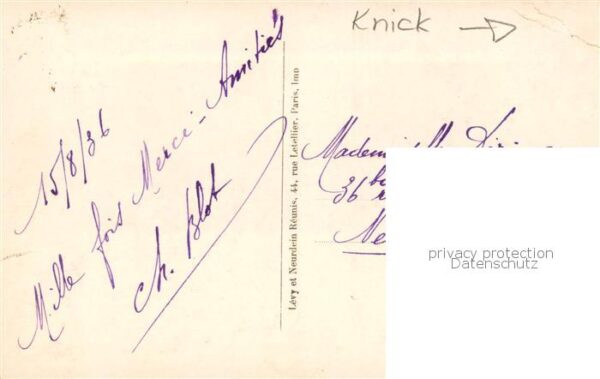 Knick
15/8/36
Mille fois Merci - Amitiés
Ch. Blot
Lévy et Neurdein Réunis, 44, rue Letellier, Paris, Imp
36
privacy protection
Datenschutz